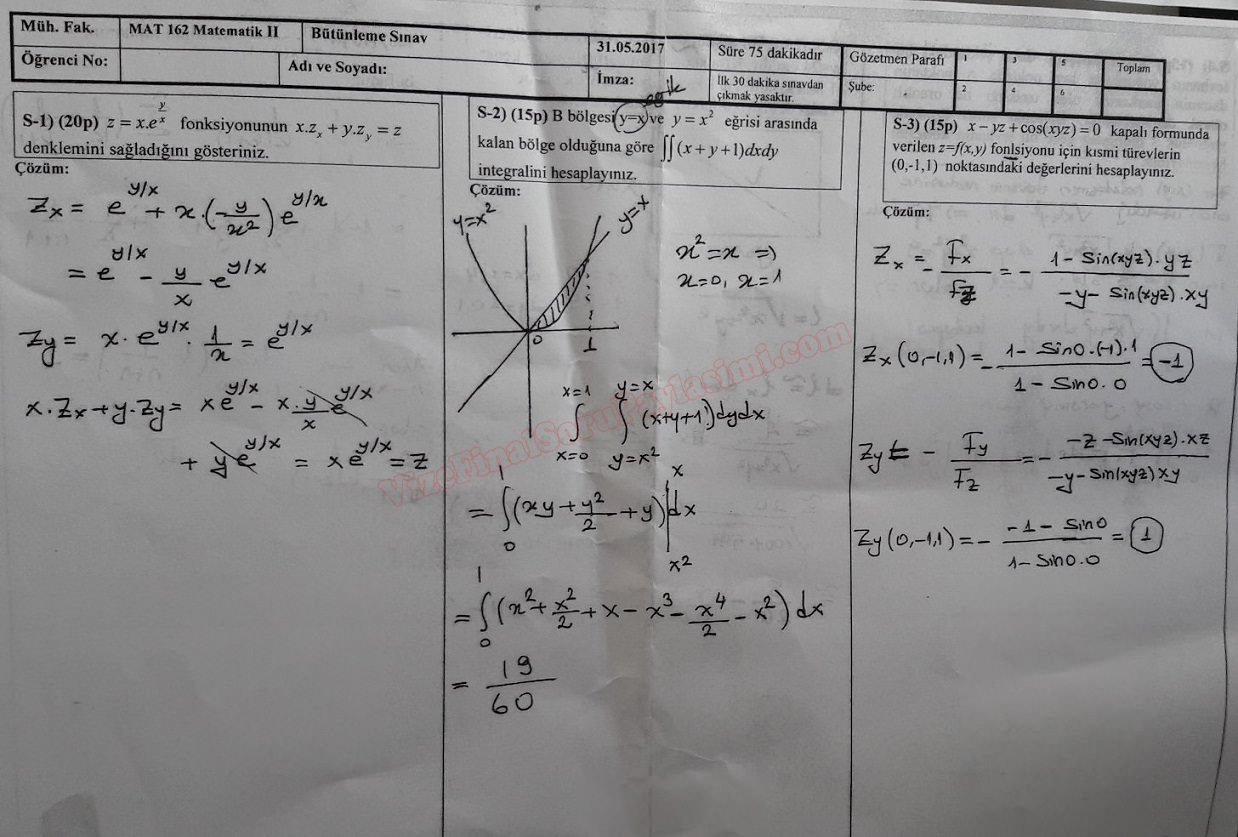 Müh. Fak. MAT 162 Matematik II Bütünleme Sınav 31.05.2017 Süre 75 dakikadır Gözetmen Parafı 1 3 5 Toplam
Öğrenci No: Adı ve Soyadı: İmza: İlk 30 dakika sınavdan çıkmak yasaktır. Şube: 2 4 6
S-1) (20p) z = x.e^(y/x) fonksiyonunun x.z_x + y.z_y = z
denklemini sağladığını gösteriniz.
Çözüm:
Z_x = e^(y/x) + x.(-y/x²) e^(y/x)
= e^(y/x) - y/x e^(y/x)
Z_y = x. e^(y/x) . 1/x = e^(y/x)
x.Z_x + y.Z_y = xe^(y/x) - x.y/x e^(y/x)
+ ye^(y/x) = xe^(y/x) = Z
S-2) (15p) B bölgesi y=x ve y = x² eğrisi arasında
kalan bölge olduğuna göre ∬(x+y+1)dxdy
integralini hesaplayınız.
Çözüm:
y=x² y=x
x²=x =>
x=0, x=1
0 1
x=1 y=x
∫ ∫ (x+y+1)dydx
x=0 y=x²
1 x
= ∫(xy + y²/2 + y)|dx
0 x²
1
= ∫(x² + x²/2 + x - x³ - x⁴/2 - x²) dx
0
= 19/60
S-3) (15p) x - yz + cos(xyz) = 0 kapalı formunda
verilen z=f(x,y) fonlsiyonu için kısmi türevlerin
(0,-1,1) noktasındaki değerlerini hesaplayınız.
Çözüm:
Z_x = - F_x/F_z = - (1 - Sin(xyz).yz)/(-y - Sin(xyz).xy)
Z_x(0,-1,1) = - (1 - Sin0.(-1).1)/(1 - Sin0.0) = -1
Z_y = - F_y/F_z = - (-z - Sin(xyz).xz)/(-y - Sin(xyz)xy)
Z_y(0,-1,1) = - (-1 - Sin0)/(1 - Sin0.0) = 1
VizeFinalSoruPaylasimi.com